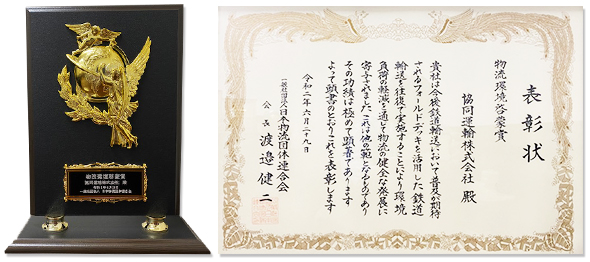 物流環境啓蒙賞
協同運輸株式会社 殿
表彰状
物流環境啓蒙賞
協同運輸株式会社 殿
貴社は今後鉄道輸送において普及が期待
されるフォールドデッキを活用した鉄道
輸送を往復で実施することにより環境
負荷の軽減を通して物流の健全な発展に
寄与されましたこれは他の範となるものであり
その功績は極めて顕著であります
よって頭書のとおりこれを表彰します
令和二年六月二十九日
一般社団法人日本物流団体連合会
会長 渡邉健二